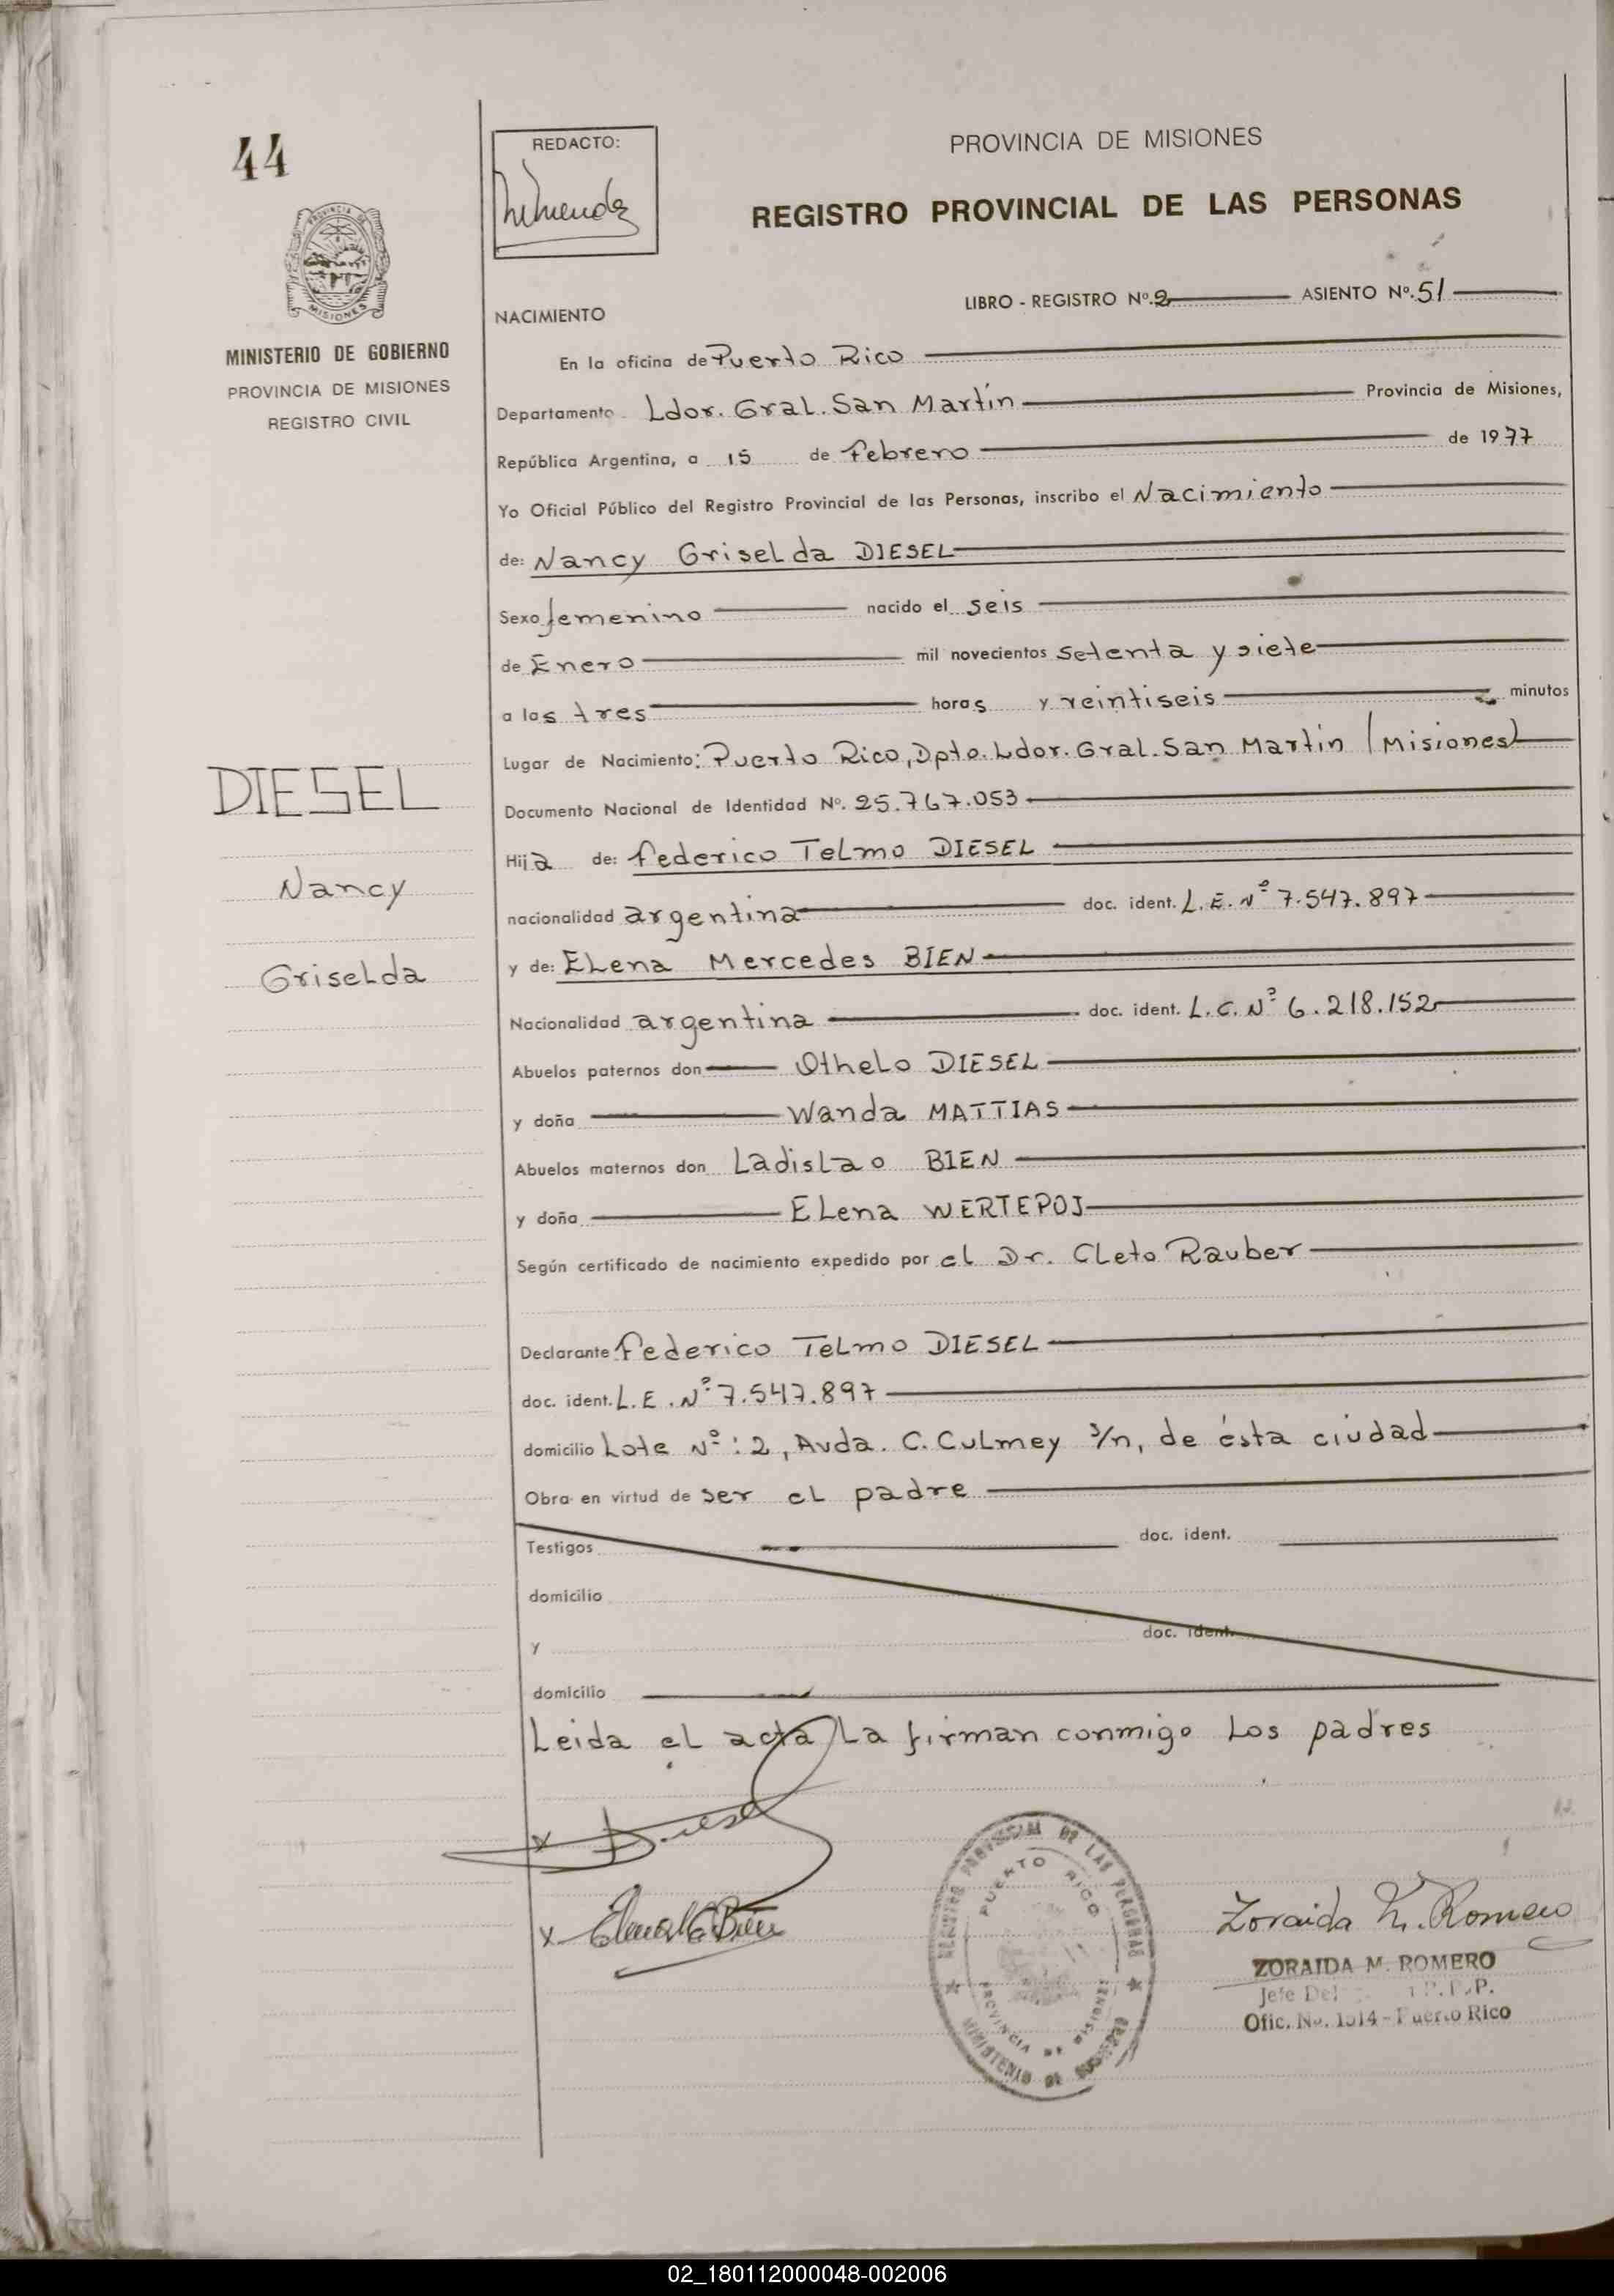 44
REDACTO:
PROVINCIA DE MISIONES
REGISTRO PROVINCIAL DE LAS PERSONAS
PROVINCIA DE
MISIONES
MINISTERIO DE GOBIERNO
PROVINCIA DE MISIONES
REGISTRO CIVIL
LIBRO - REGISTRO Nº. 2 ASIENTO Nº. 51
NACIMIENTO
En la oficina de Puerto Rico
Departamento Ldor. Gral. San Martín Provincia de Misiones,
República Argentina, a 15 de febrero de 1977
Yo Oficial Público del Registro Provincial de las Personas, inscribo el Nacimiento
de: Nancy Griselda DIESEL
Sexo femenino nacido el seis
de Enero mil novecientos setenta y siete
a las tres horas y veintiseis minutos
Lugar de Nacimiento: Puerto Rico, Dpto. Ldor. Gral. San Martin (Misiones)
DIESEL
Nancy
Griselda
Documento Nacional de Identidad Nº. 25.767.053
Hija de: Federico Telmo DIESEL
nacionalidad argentina doc. ident. L.E. Nº 7.547.897
y de: Elena Mercedes BIEN
Nacionalidad argentina doc. ident. L.C. Nº 6.218.152
Abuelos paternos don Othelo DIESEL
y doña Wanda MATTIAS
Abuelos maternos don Ladislao BIEN
y doña Elena WERTEPOJ
Según certificado de nacimiento expedido por el Dr. Cleto Rauber
Declarante Federico Telmo DIESEL
doc. ident. L.E. Nº 7.547.897
domicilio Lote Nº: 2, Avda. C. Culmey s/n, de ésta ciudad
Obra en virtud de ser el padre
Testigos doc. ident.
domicilio
y doc. ident.
domicilio
Leida el acta la firman conmigo los padres
x Diesel
x Elena M. Bien
REGISTRO PROVINCIAL DE LAS PERSONAS
PUERTO RICO
PROVINCIA DE MISIONES
MINISTERIO DE GOBIERNO
Zoraida M. Romero
ZORAIDA M. ROMERO
Jefe R.P.P.
Ofic. No. 1514 - Puerto Rico
02_180112000048-002006